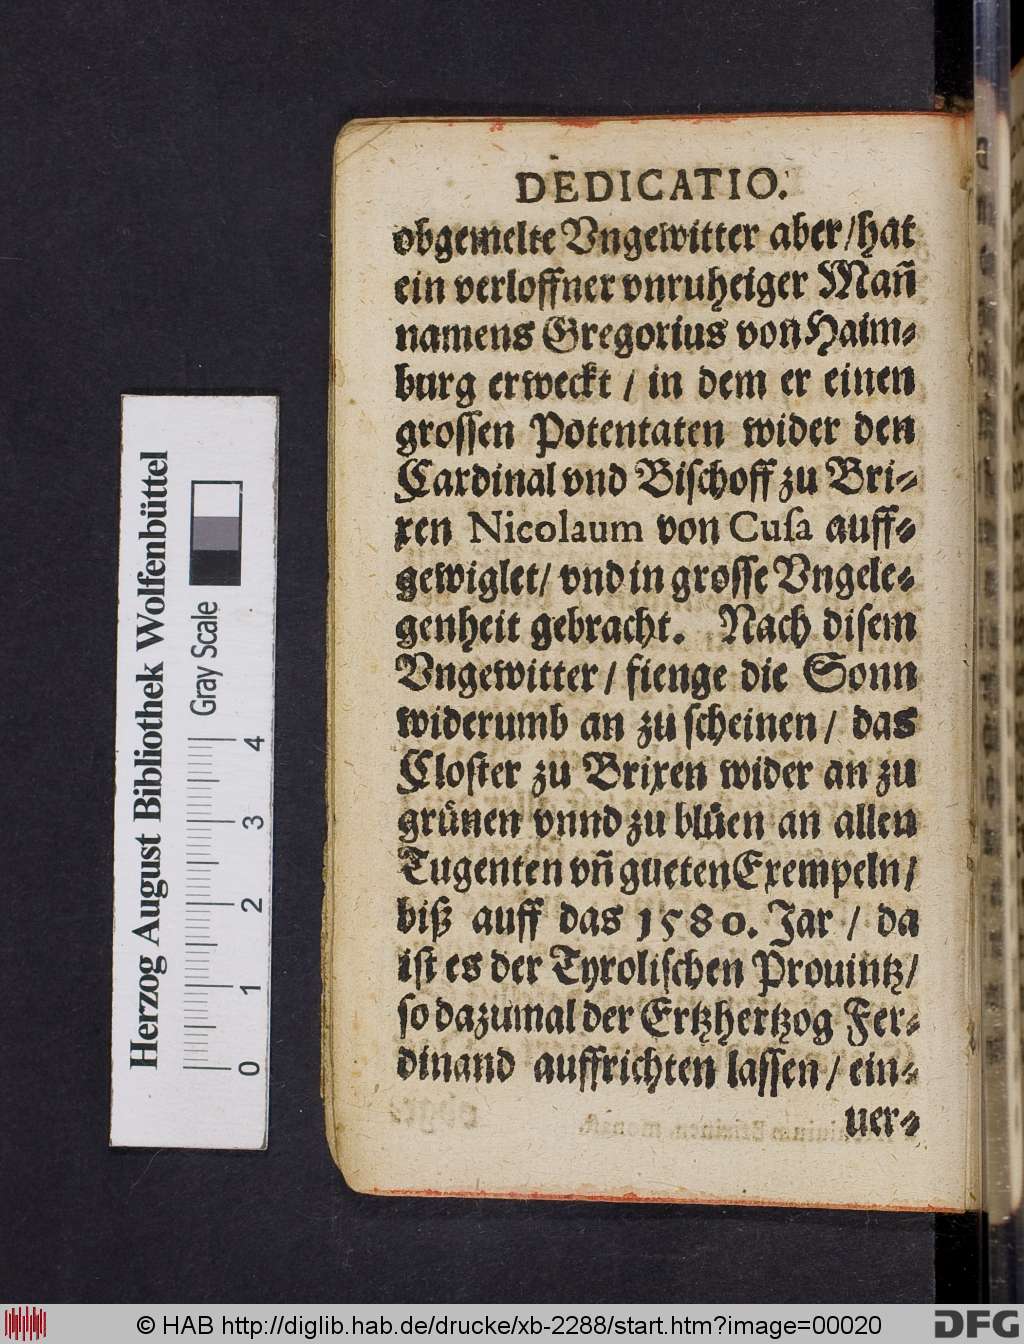 DEDICATIO.
obgemelte Vngewitter aber/hat
ein verloffner vnruheiger Mañ
namens Gregorius von Haim⸗
burg erweckt / in dem er einen
grossen Potentaten wider den
Cardinal vnd Bischoff zu Bri⸗
xen Nicolaum von Cuſa auff⸗
gewiglet/ vnd in groſſe Vngele⸗
genheit gebracht. Nach diſem
Vngewitter / fienge die Sonn
widerumb an zu ſcheinen / das
Cloſter zu Brixen wider an zu
grünen vnnd zu blüen an allen
Tugenten vñ gueten Exempeln /
biß auff das 1580. Jar / da
iſt es der Tyroliſchen Prouintz /
ſo dazumal der Ertzhertzog Fer⸗
dinand auffrichten laſſen / ein⸗
uer⸗
Herzog August Bibliothek Wolfenbüttel
Gray Scale
0 1 2 3 4
© HAB http://diglib.hab.de/drucke/xb-2288/start.htm?image=00020
DFG